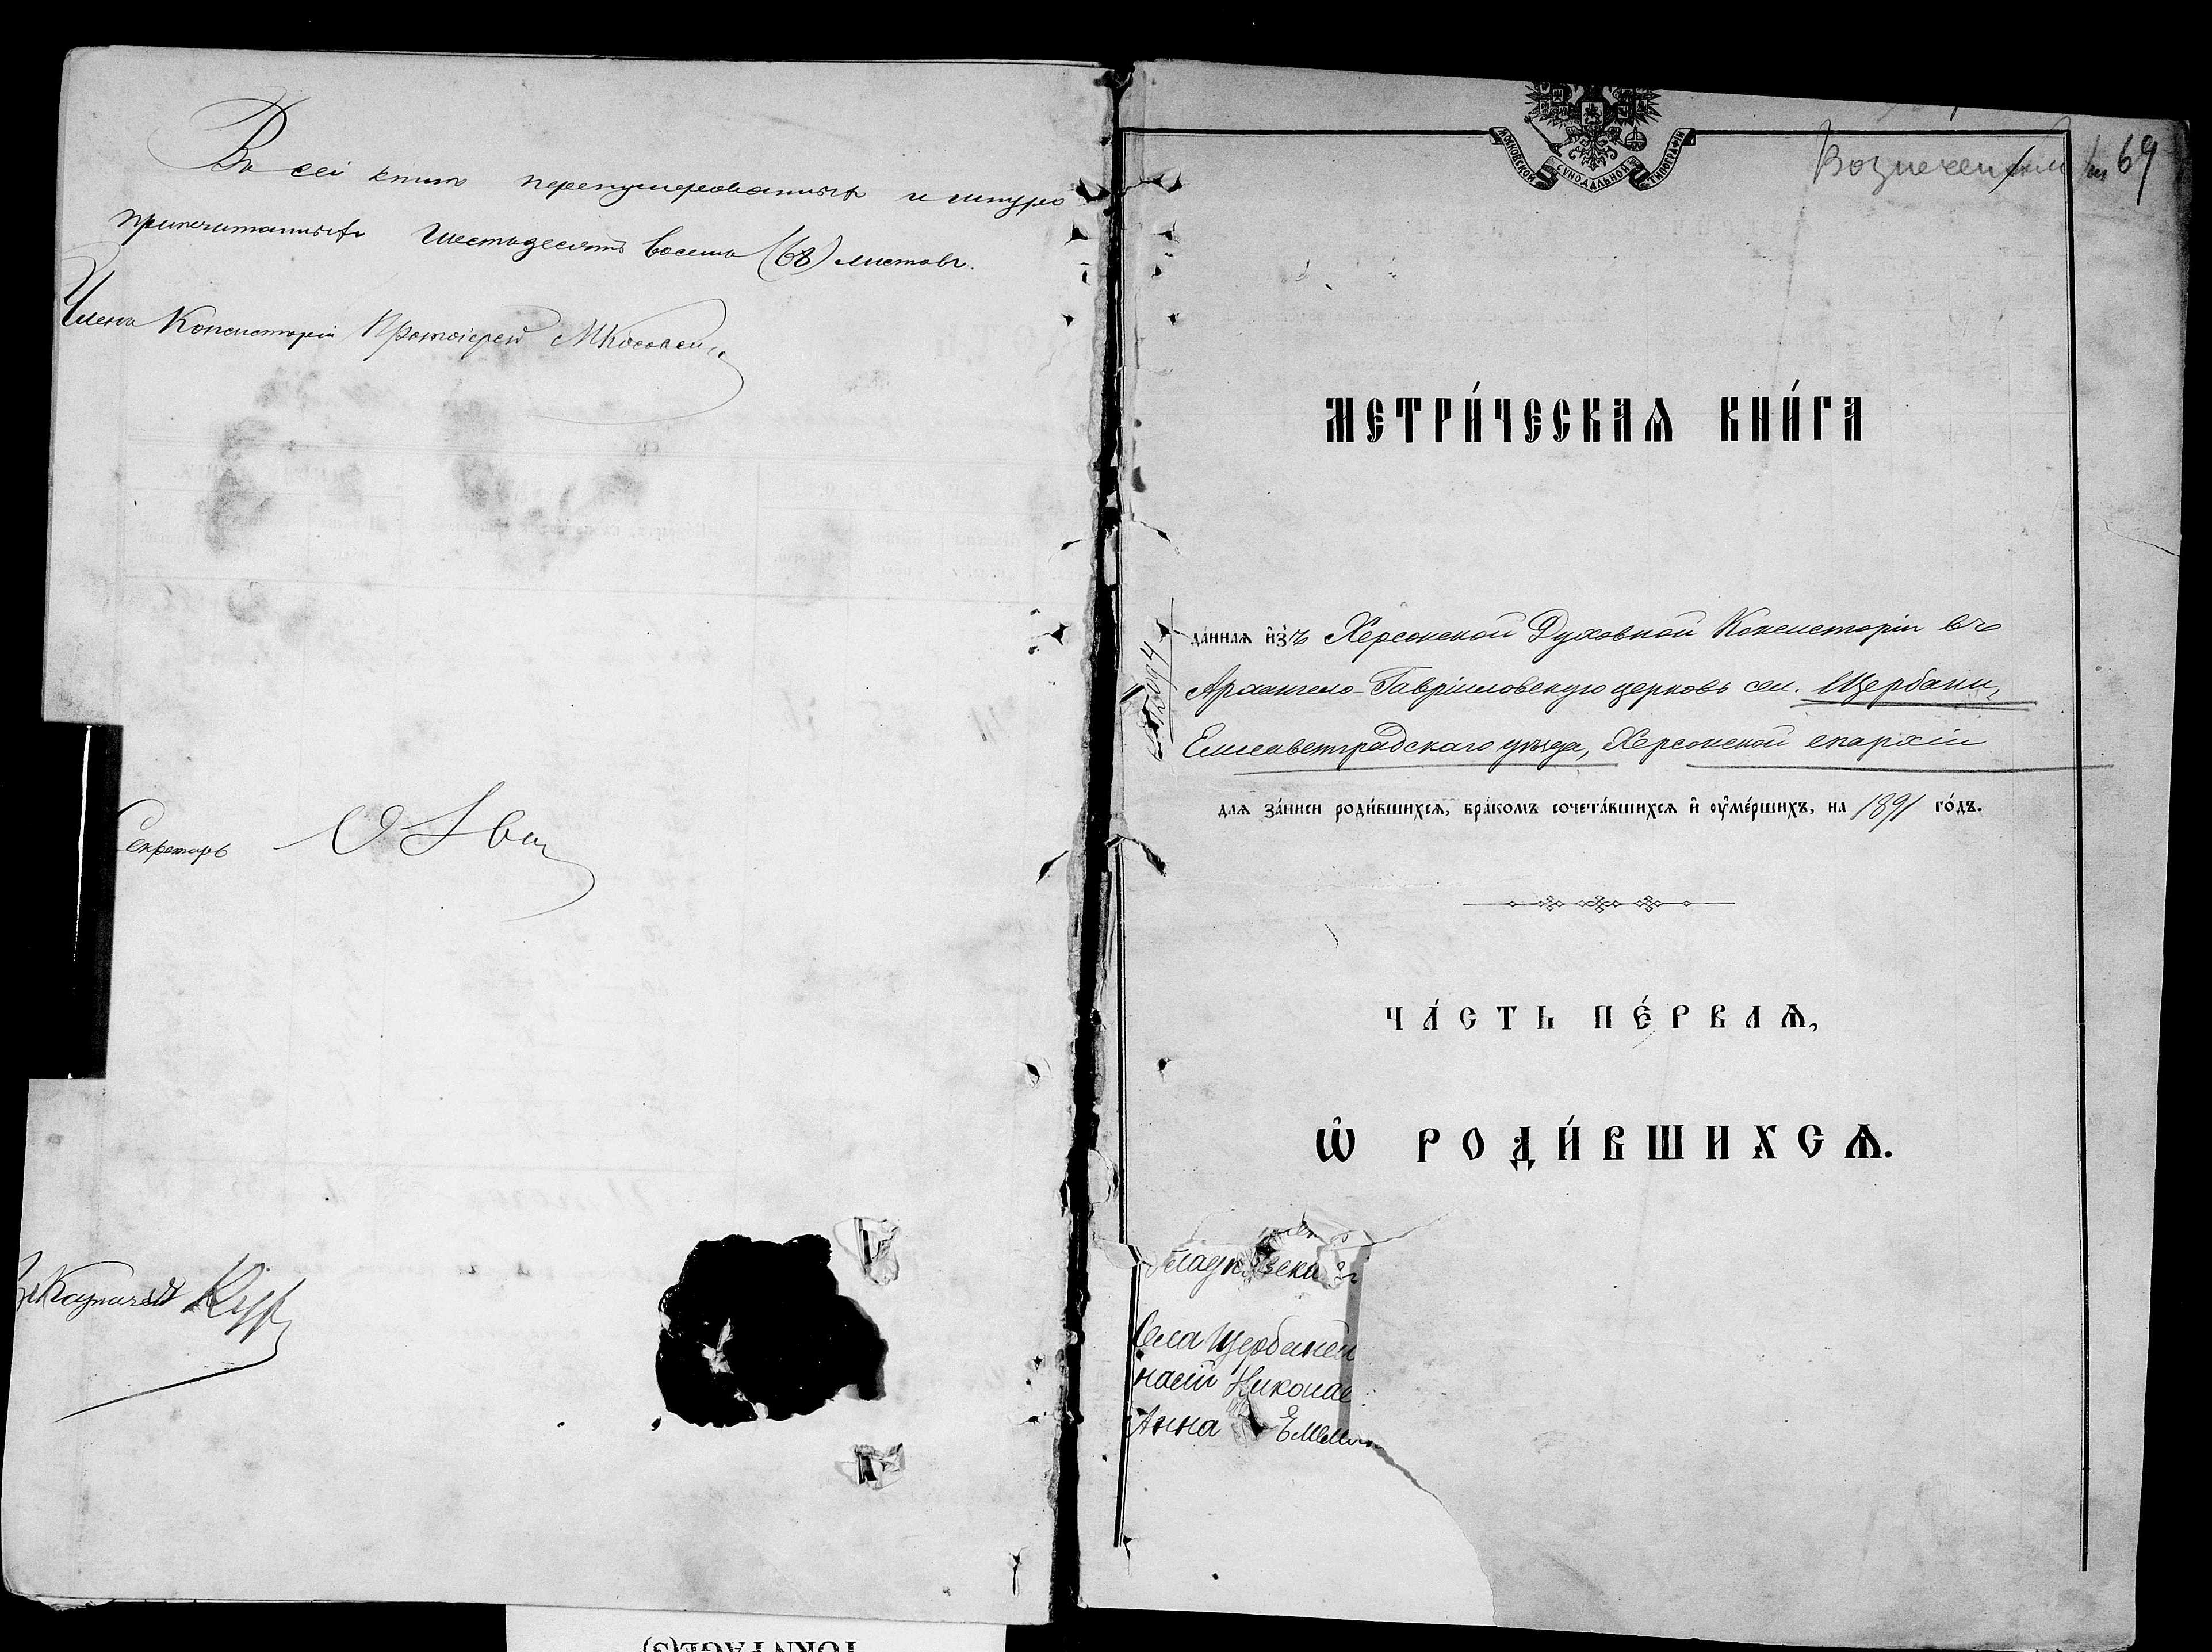 Въ сей книгѣ перенумерованныхъ и шнуро
припечатанныхъ шестьдесятъ восемь (68) листовъ.
Членъ Консисторіи Протоіерей
Секретарь
Казначей
МОСКОВСКОЙ СѴНОДАЛЬНОЙ ТИПОГРАФІИ
69
МЕТРИ́ЧЕСКАѦ КНИ́ГА
да́ннаѧ и҆зъ Херсонской Духовной Консисторіи въ
Архангело-Гавріиловскую церковь сел. Щербани,
Елисаветградскаго уѣзда, Херсонской епархіи
длѧ за́писи роди́вшихсѧ, бра́комъ сочета́вшихсѧ и҆ ᲂу҆ме́ршихъ, на 1891 го́дъ.
ЧА́СТЬ ПЕ́РВАѦ,
Ѽ РОДИ́ВШИХСѦ.
Села Щербаней
насій Николае
Анна
TORN PAGE(S)